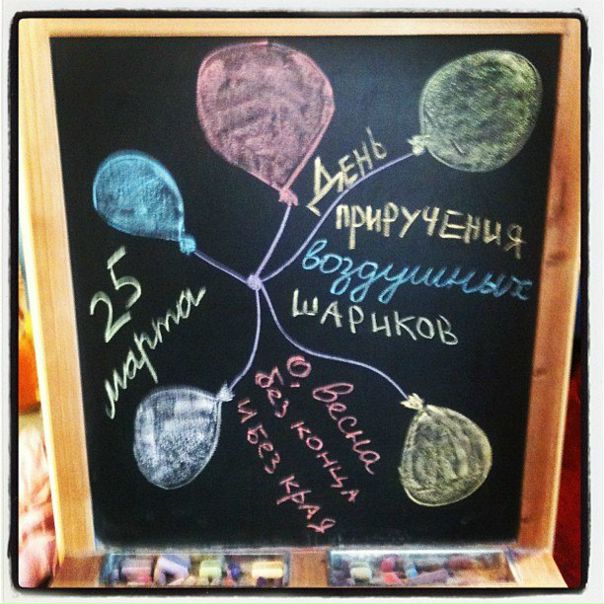 День
приручения
воздушных
шариков
25
марта
О, весна
без конца
и без края